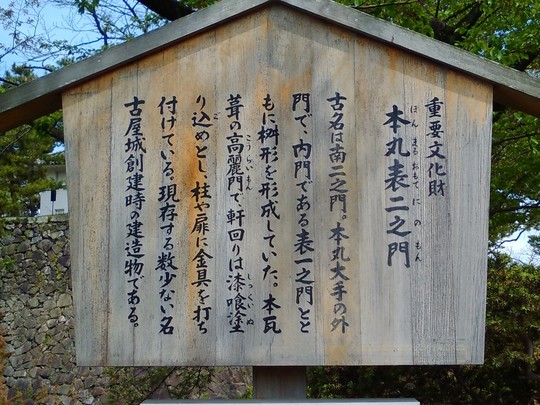 重要文化財
本丸表二之門
ほんまるおもてにのもん
古名は南二之門。本丸大手の外
門で、内門である表一之門とと
もに桝形を形成していた。本瓦
葺の高麗門で、軒回りは漆喰塗
こうらいもん
しっくいぬ
り込めとし、柱や扉に金具を打ち
こ
付けている。現存する数少ない名
古屋城創建時の建造物である。